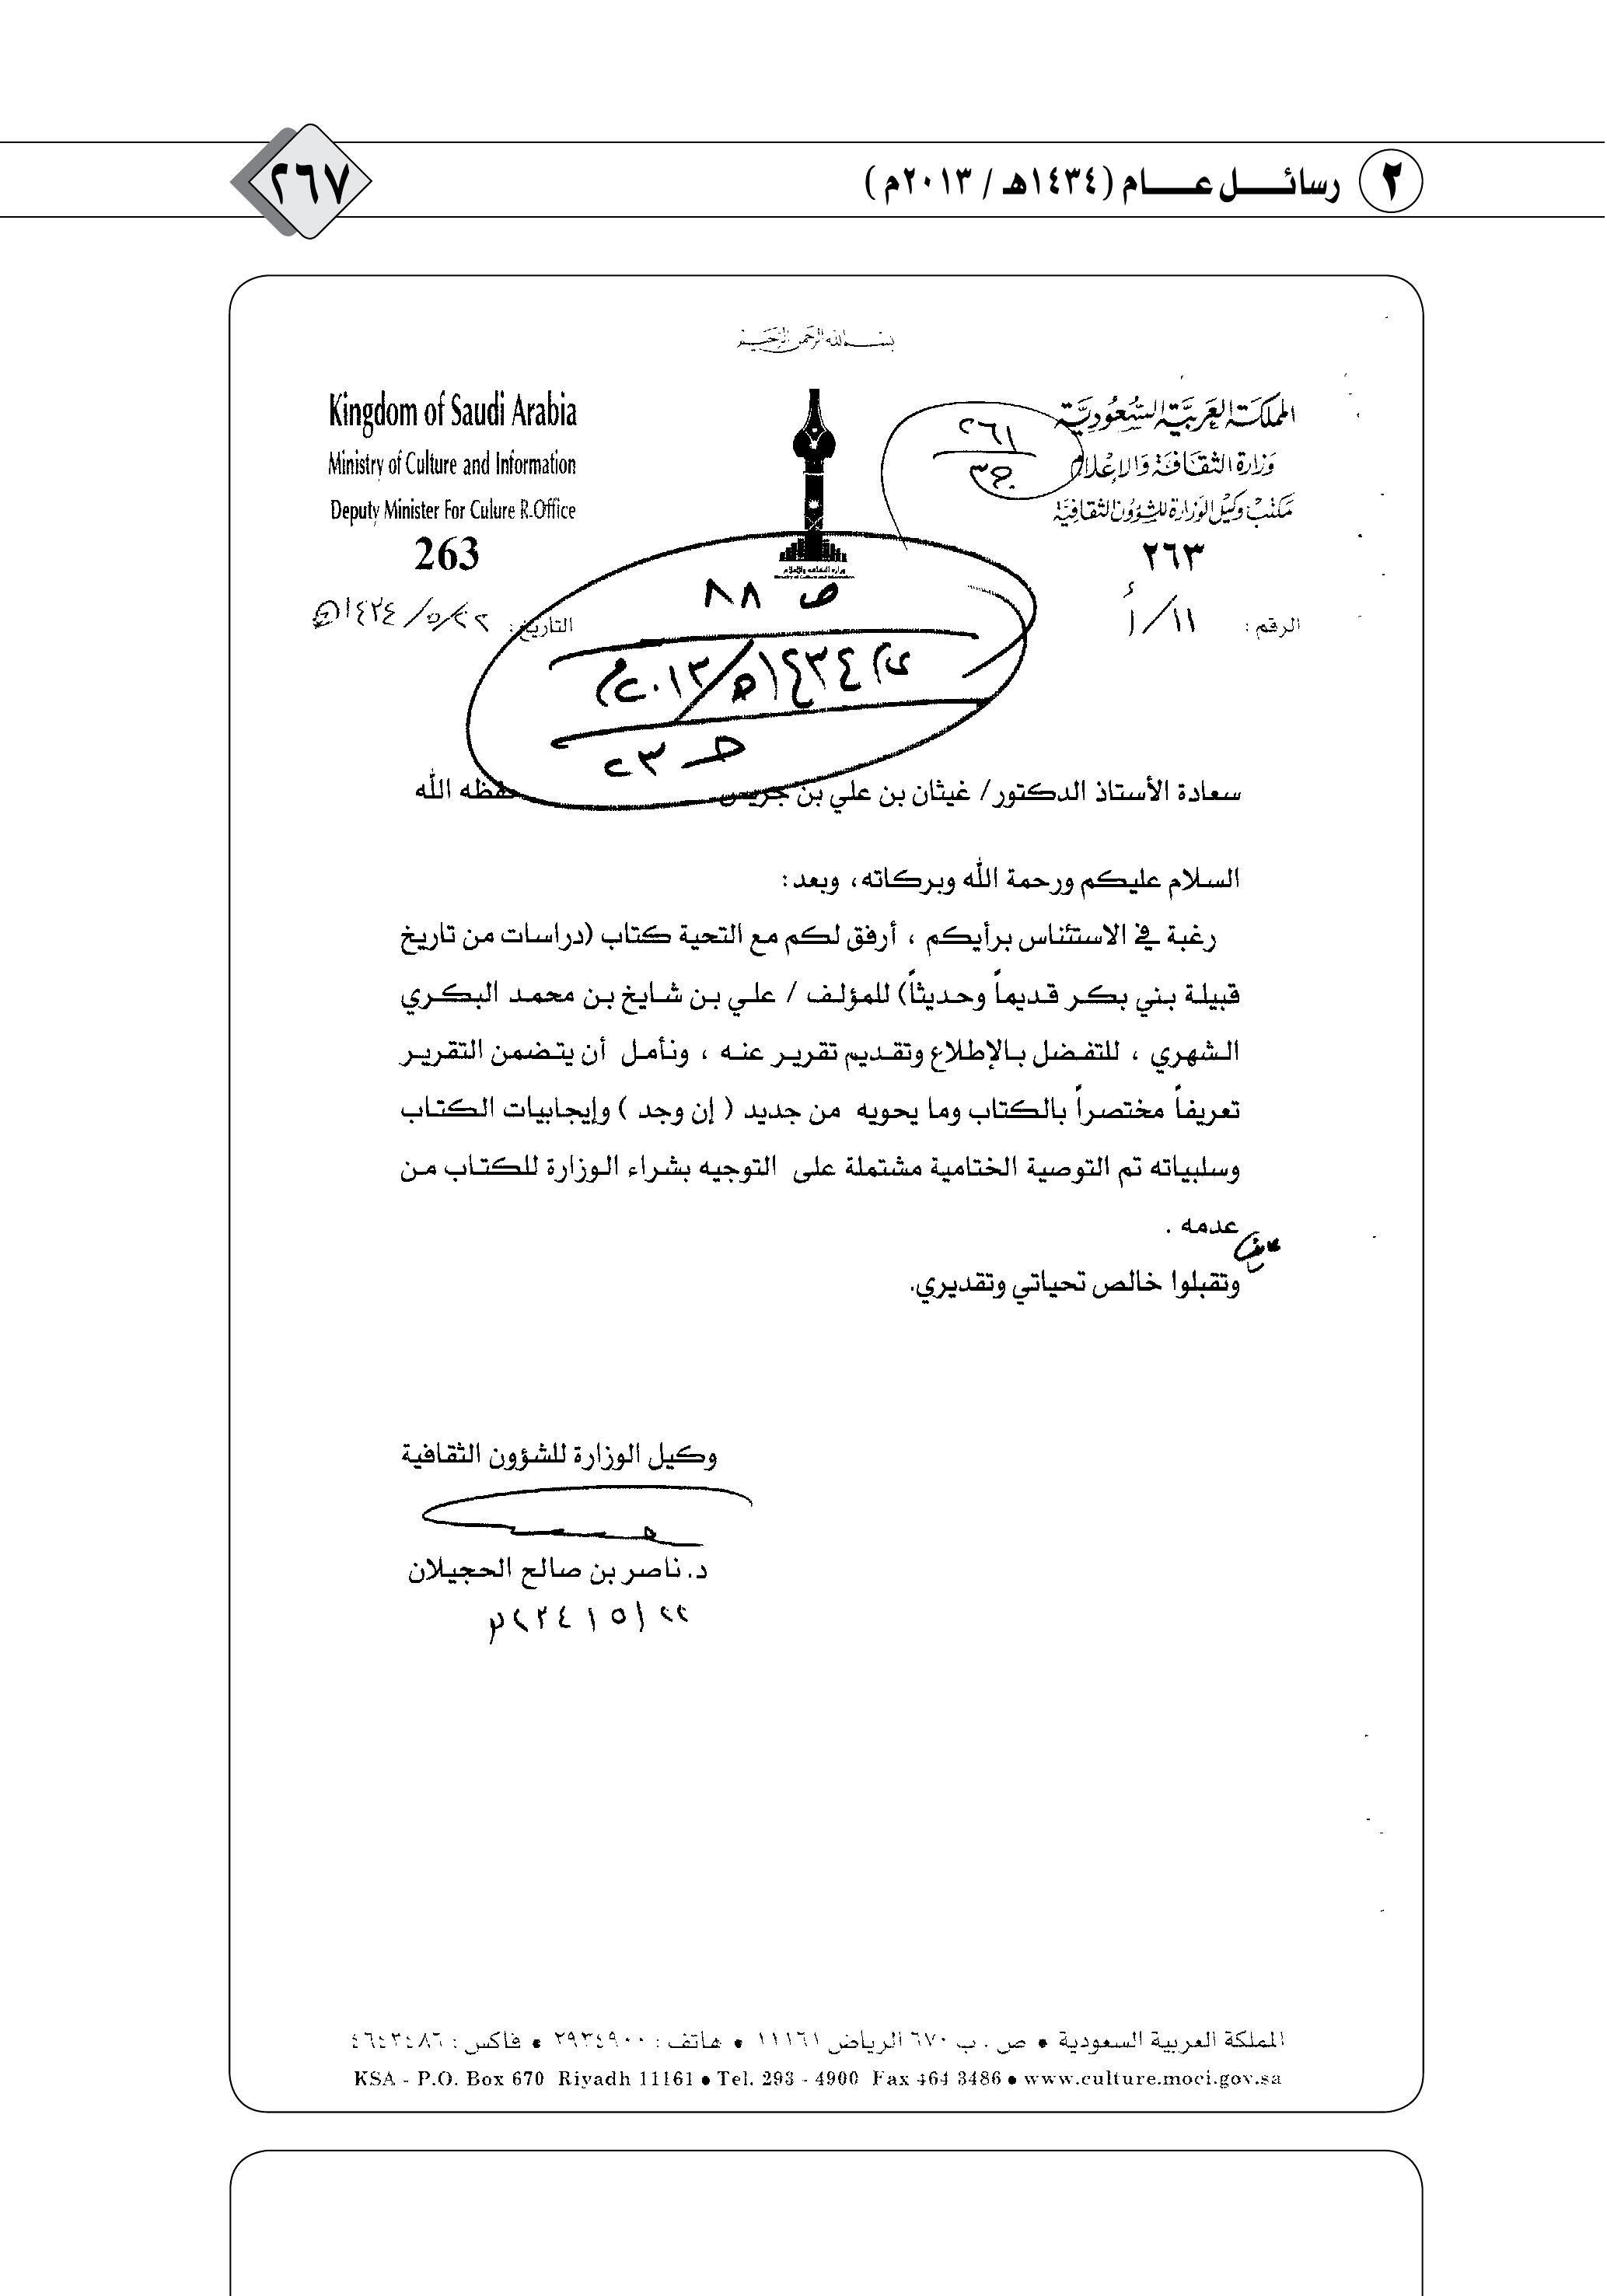 ٢ رسائل عام (١٤٣٤هـ / ٢٠١٣م)
٢٦٧
بسم الله الرحمن الرحيم
المملكة العربية السعودية
وزارة الثقافة والإعلام
مكتب وكيل الوزارة للشؤون الثقافية
٢٦٣
الرقم : ١١/أ
Kingdom of Saudi Arabia
Ministry of Culture and Information
Deputy Minister For Culure R.Office
263
التاريخ : ٢٢/٥/١٤٣٤هـ
٢٦١
ج٣
وزارة الثقافة والإعلام
Ministry of Culture and Information
ص ٨٨
١٤٣٤هـ/٢٠١٣م
حـ ٢٣
سعادة الأستاذ الدكتور/ غيثان بن علي بن جريس حفظه الله
السلام عليكم ورحمة الله وبركاته، وبعد:
رغبة في الاستئناس برأيكم ، أرفق لكم مع التحية كتاب (دراسات من تاريخ
قبيلة بني بكر قديماً وحديثاً) للمؤلف / علي بن شايخ بن محمد البكري
الشهري ، للتفضل بالإطلاع وتقديم تقرير عنه ، ونأمل أن يتضمن التقرير
تعريفاً مختصراً بالكتاب وما يحويه من جديد ( إن وجد ) وإيجابيات الكتاب
وسلبياته تم التوصية الختامية مشتملة على التوجيه بشراء الوزارة للكتاب من
عدمه .
وتقبلوا خالص تحياتي وتقديري.
وكيل الوزارة للشؤون الثقافية
د. ناصر بن صالح الحجيلان
المملكة العربية السعودية • ص . ب ٦٧٠ الرياض ١١١٦١ • هاتف : ٢٩٣٤٩٠٠ • فاكس : ٤٦٤٣٤٨٦
KSA - P.O. Box 670 Riyadh 11161 • Tel. 293 - 4900 Fax 464 3486 • www.culture.moci.gov.sa